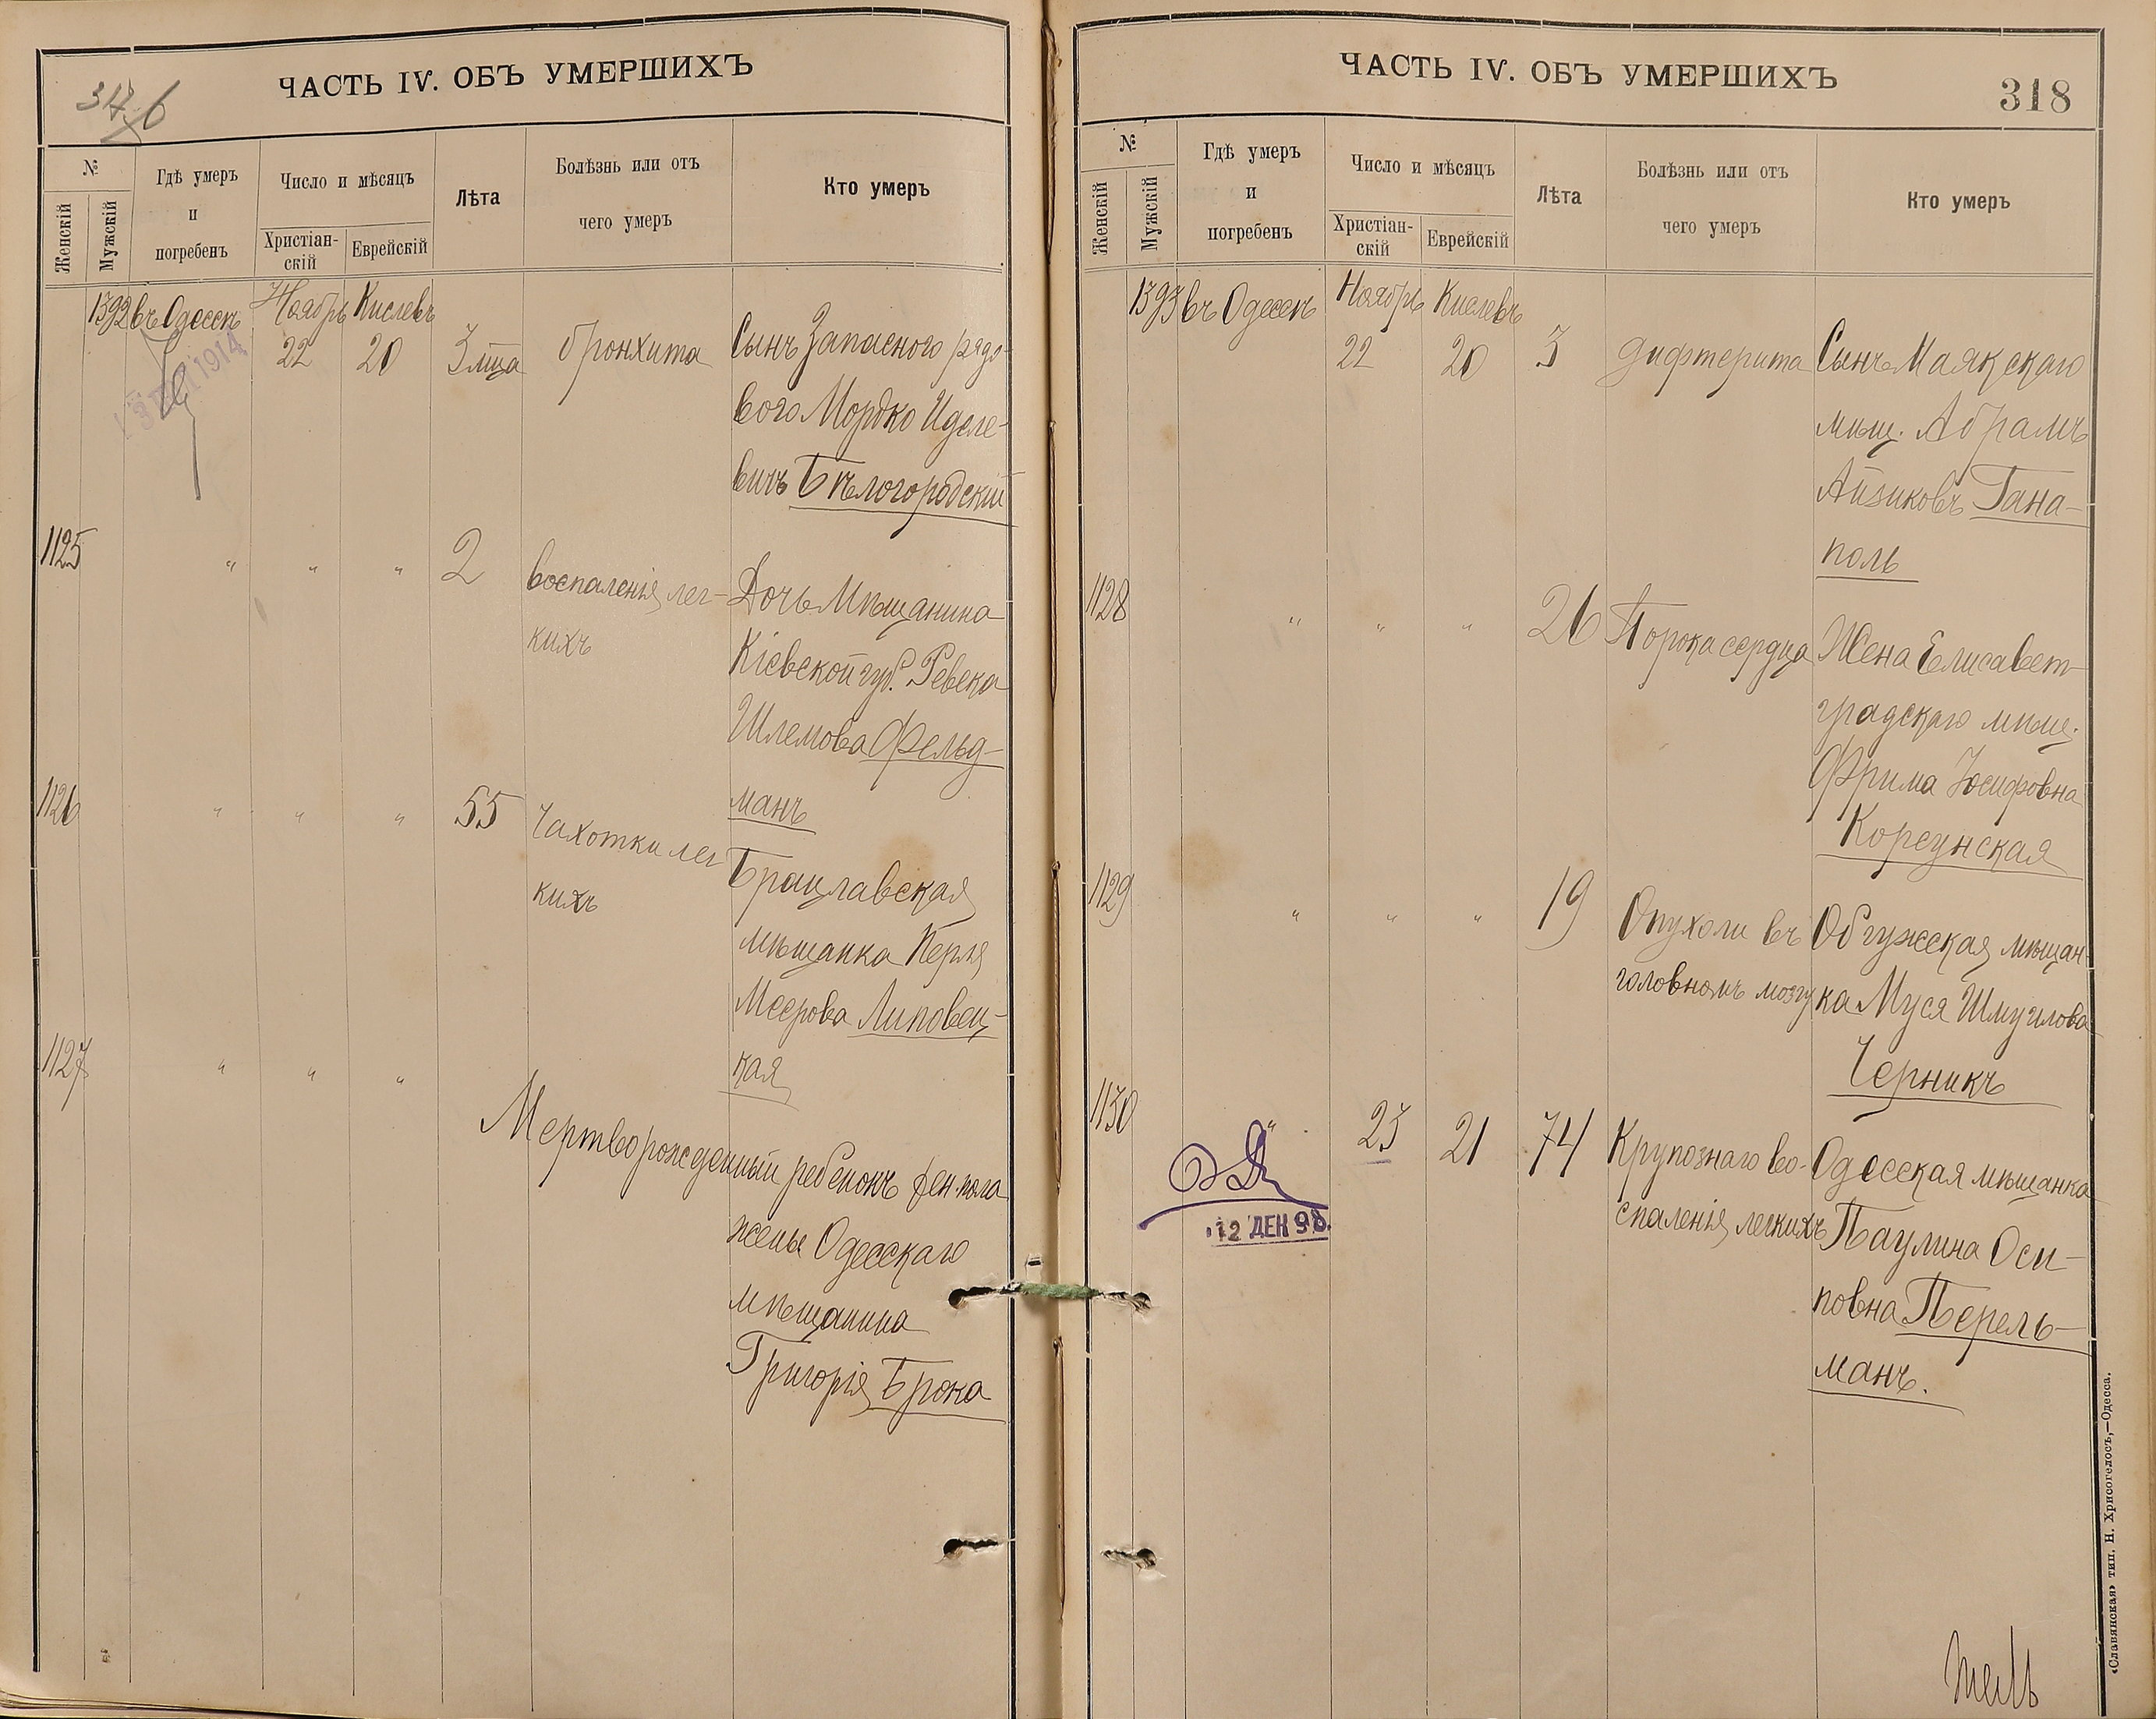 ЧАСТЬ IV. ОБЪ УМЕРШИХЪ
№
Женскій
Мужскій
Гдѣ умеръ
и
погребенъ
Число и мѣсяцъ
Христіан-
скій
Еврейскій
Лѣта
Болѣзнь или отъ
чего умеръ
Кто умеръ
1392 въ Одессѣ Ноябрь Кислевъ
22 20 3 м̃ца бронхита Сынъ Запаснаго рядо-
вого Мордко Иделе-
вичъ Бѣлогородскій
1914
1125 " " " 2 воспаленія лег- Дочь Мѣщанина
кихъ Кіевской губ. Ревека
Шлемова Фельд-
манъ
1126 " " " 55 Чахотки лег
кихъ Брацлавская
мѣщанка Перля
Меерова Липовец-
кая
1127 " " "
Мертворожденный ребенокъ жен. пола
жены Одесскаго
мѣщанина
Григорія Брока
ЧАСТЬ IV. ОБЪ УМЕРШИХЪ
318
№
Женскій
Мужскій
Гдѣ умеръ
и
погребенъ
Число и мѣсяцъ
Христіан-
скій
Еврейскій
Лѣта
Болѣзнь или отъ
чего умеръ
Кто умеръ
1393 въ Одессѣ Ноябрь Кислевъ
22 20 3 дифтерита Сынъ Маякскаго
мѣщ. Абрамъ
Айзиковъ Гана-
поль
1128 " " " 26 Порока сердца Жена Елисавет-
градскаго мѣщ.
Фрима Іосифовна
Корсунская
1129 " " " 19 Опухоли въ Обгужская мѣщан-
головномъ мозгу ка Муся Шмуилова
Черникъ
1130 " 23 21 74 Крупознаго во- Одесская мѣщанка
спаленія легкихъ Паулина Оси-
повна Перель-
манъ.
12 ДЕК 98.
«Славянская» тип. Н. Хрисогелосъ,—Одесса.